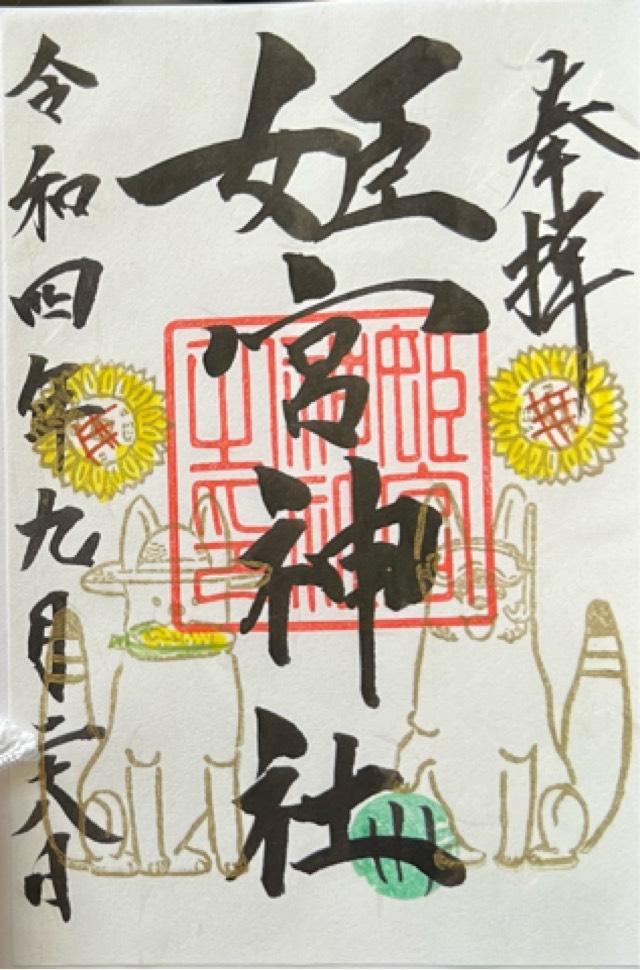 奉拝
姫宮神社
姫宮
神社
之印
令和四年九月二十八日